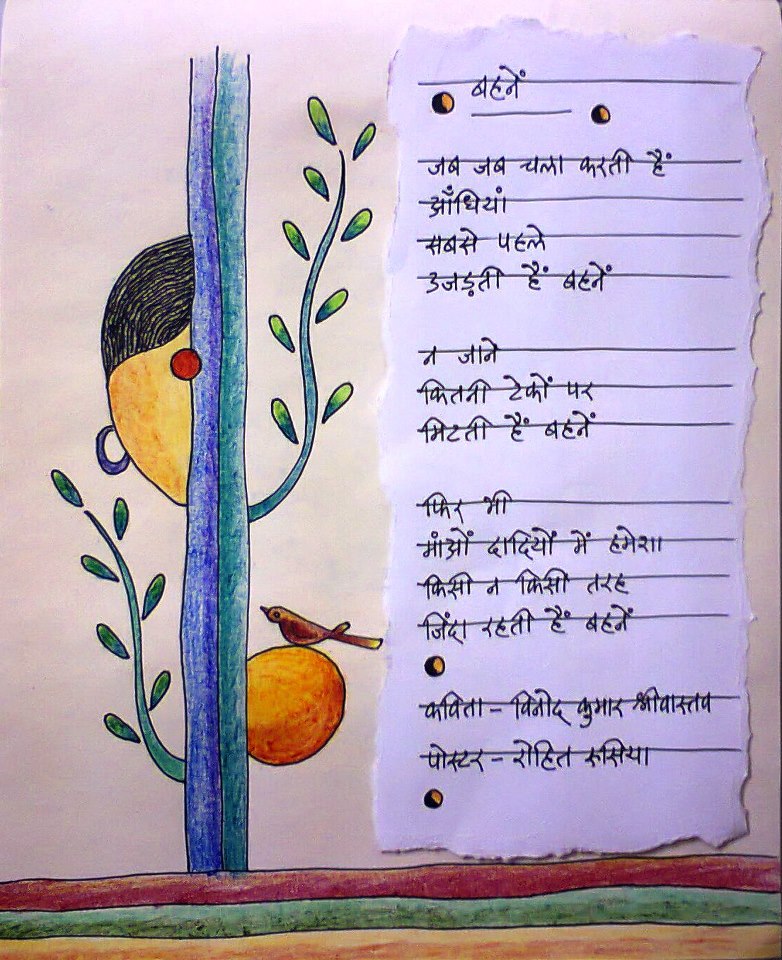 बहनें
जब जब चला करती हैं
आँधियां
सबसे पहले
उजड़ती हैं बहनें
न जाने
कितनी टेकों पर
मिटती हैं बहनें
फिर भी
मांओं दादियों में हमेशा
किसी न किसी तरह
जिंदा रहती हैं बहनें
कविता - विनोद कुमार श्रीवास्तव
पोस्टर - रोहित रूसिया